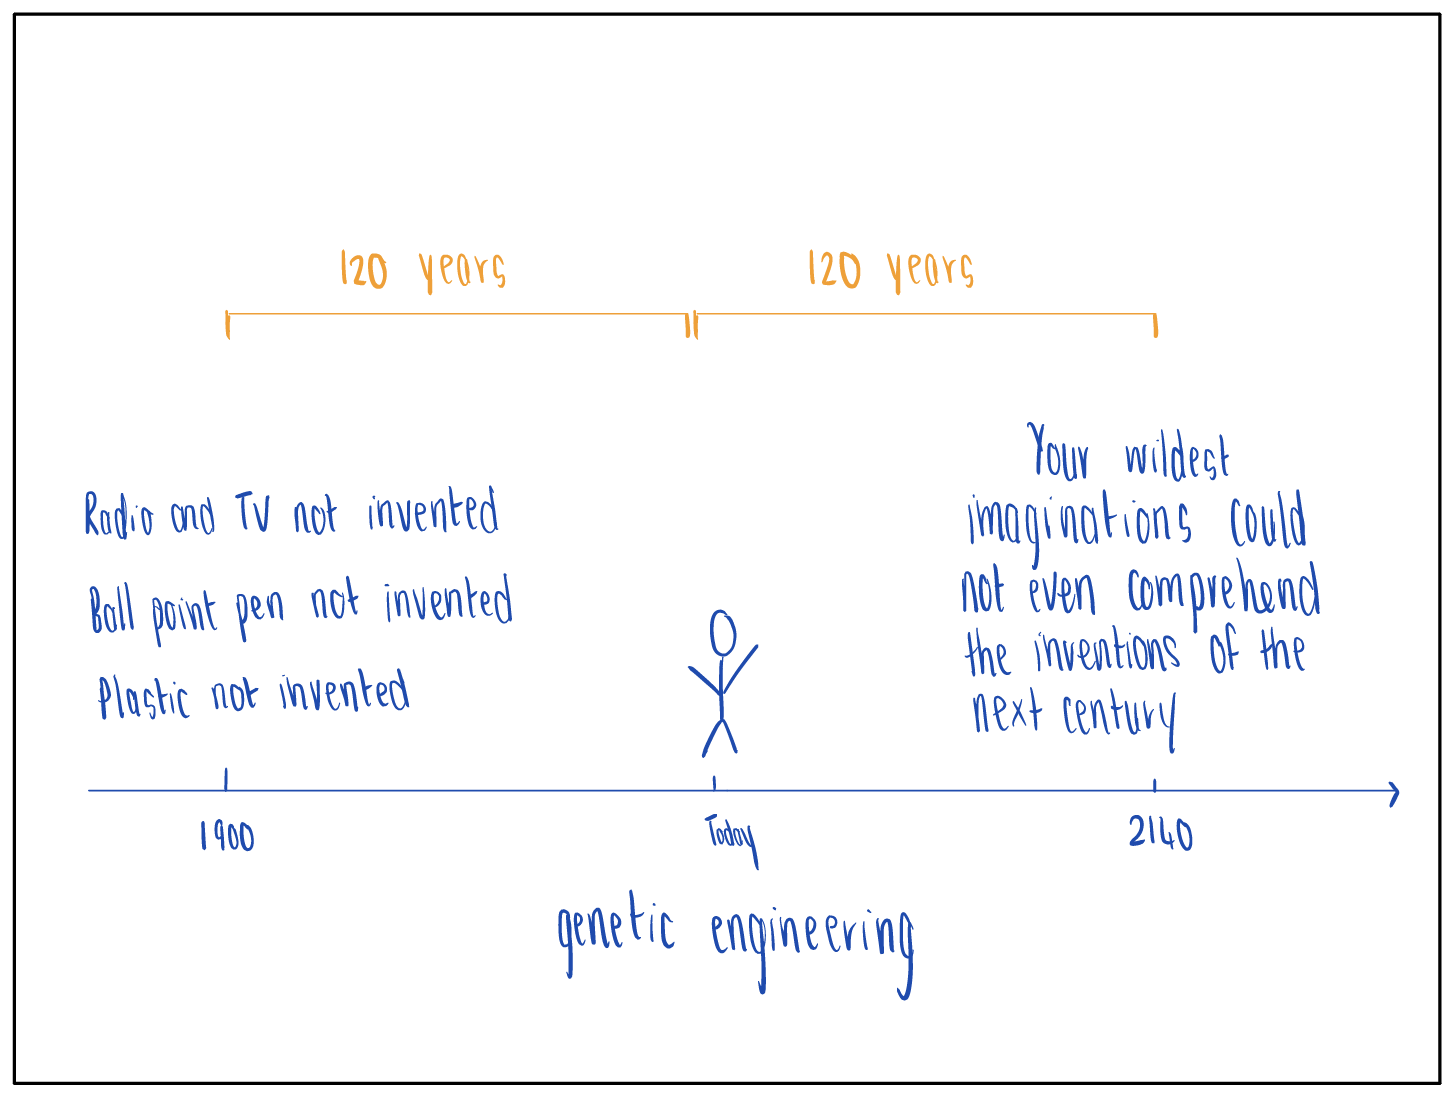 120 years
120 years
Radio and TV not invented
Ball point pen not invented
Plastic not invented
Your wildest
imaginations could
not even comprehend
the inventions of the
next century
1900
Today
2140
genetic engineering